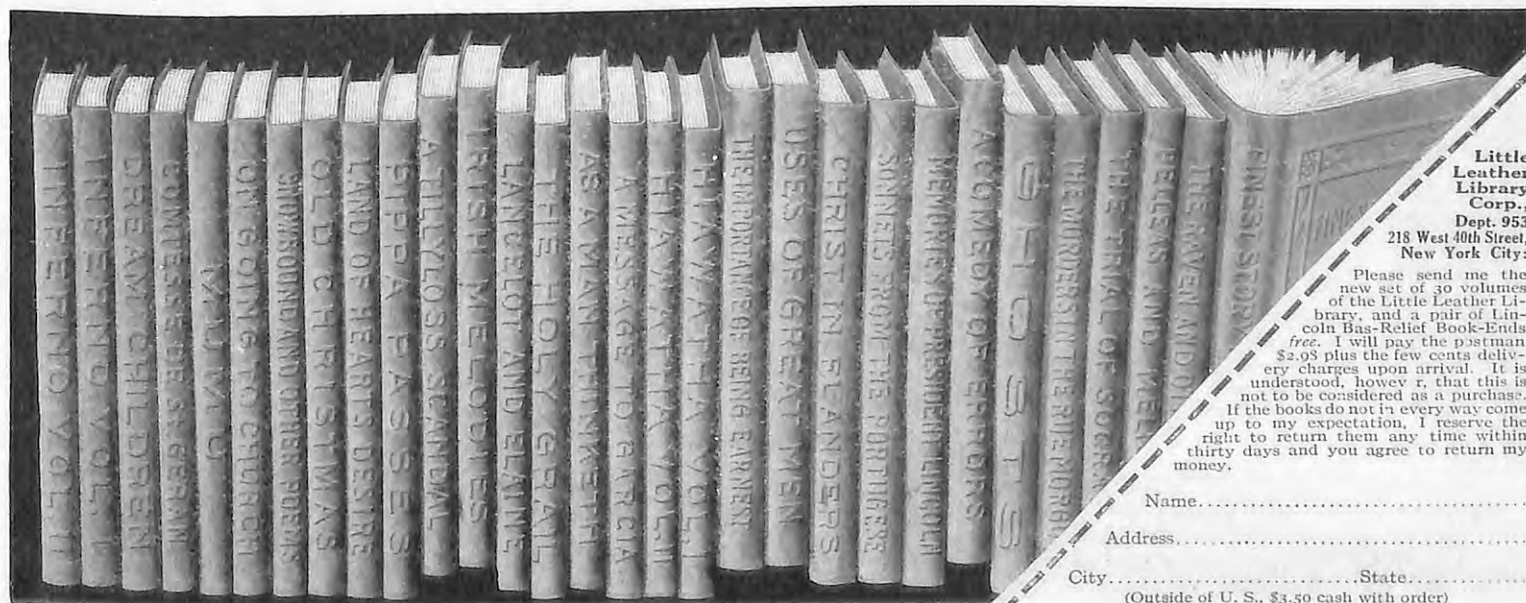 INFERNO VOL. II
INFERNO VOL. I
DREAM CHILDREN
COMTESSE DE ST. GERAN
MUMU
ON GOING TO CHURCH
SNOWBOUND AND OTHER POEMS
OLD CHRISTMAS
LAND OF HEARTS DESIRE
PIPPA PASSES
A TILLYLOSS SCANDAL
IRISH MELODIES
LANCELOT AND ELAINE
THE HOLY GRAIL
AS A MAN THINKETH
A MESSAGE TO GARCIA
HIAWATHA VOL. II
HIAWATHA VOL. I
THE IMPORTANCE OF BEING EARNEST
USES OF GREAT MEN
CHRIST IN FLANDERS
SONNETS FROM THE PORTUGESE
MEMORIES OF PRESIDENT LINCOLN
A COMEDY OF ERRORS
GHOSTS
THE MURDERS IN THE RUE MORGUE
THE TRIAL OF SOCRA
PELLEAS AND MELI
THE RAVEN AND
FINEST STORY
FIN
Little
Leather
Library
Corp.,
Dept. 953
218 West 40th Street,
New York City:
Please send me the
new set of 30 volumes
of the Little Leather Li-
brary, and a pair of Lin-
coln Bas-Relief Book-Ends
free. I will pay the postman
$2.98 plus the few cents deliv-
ery charges upon arrival. It is
understood, howev r, that this is
not to be considered as a purchase.
If the books do not in every way come
up to my expectation, I reserve the
right to return them any time within
thirty days and you agree to return my
money.
Name
Address
City State
(Outside of U. S., $3.50 cash with order)